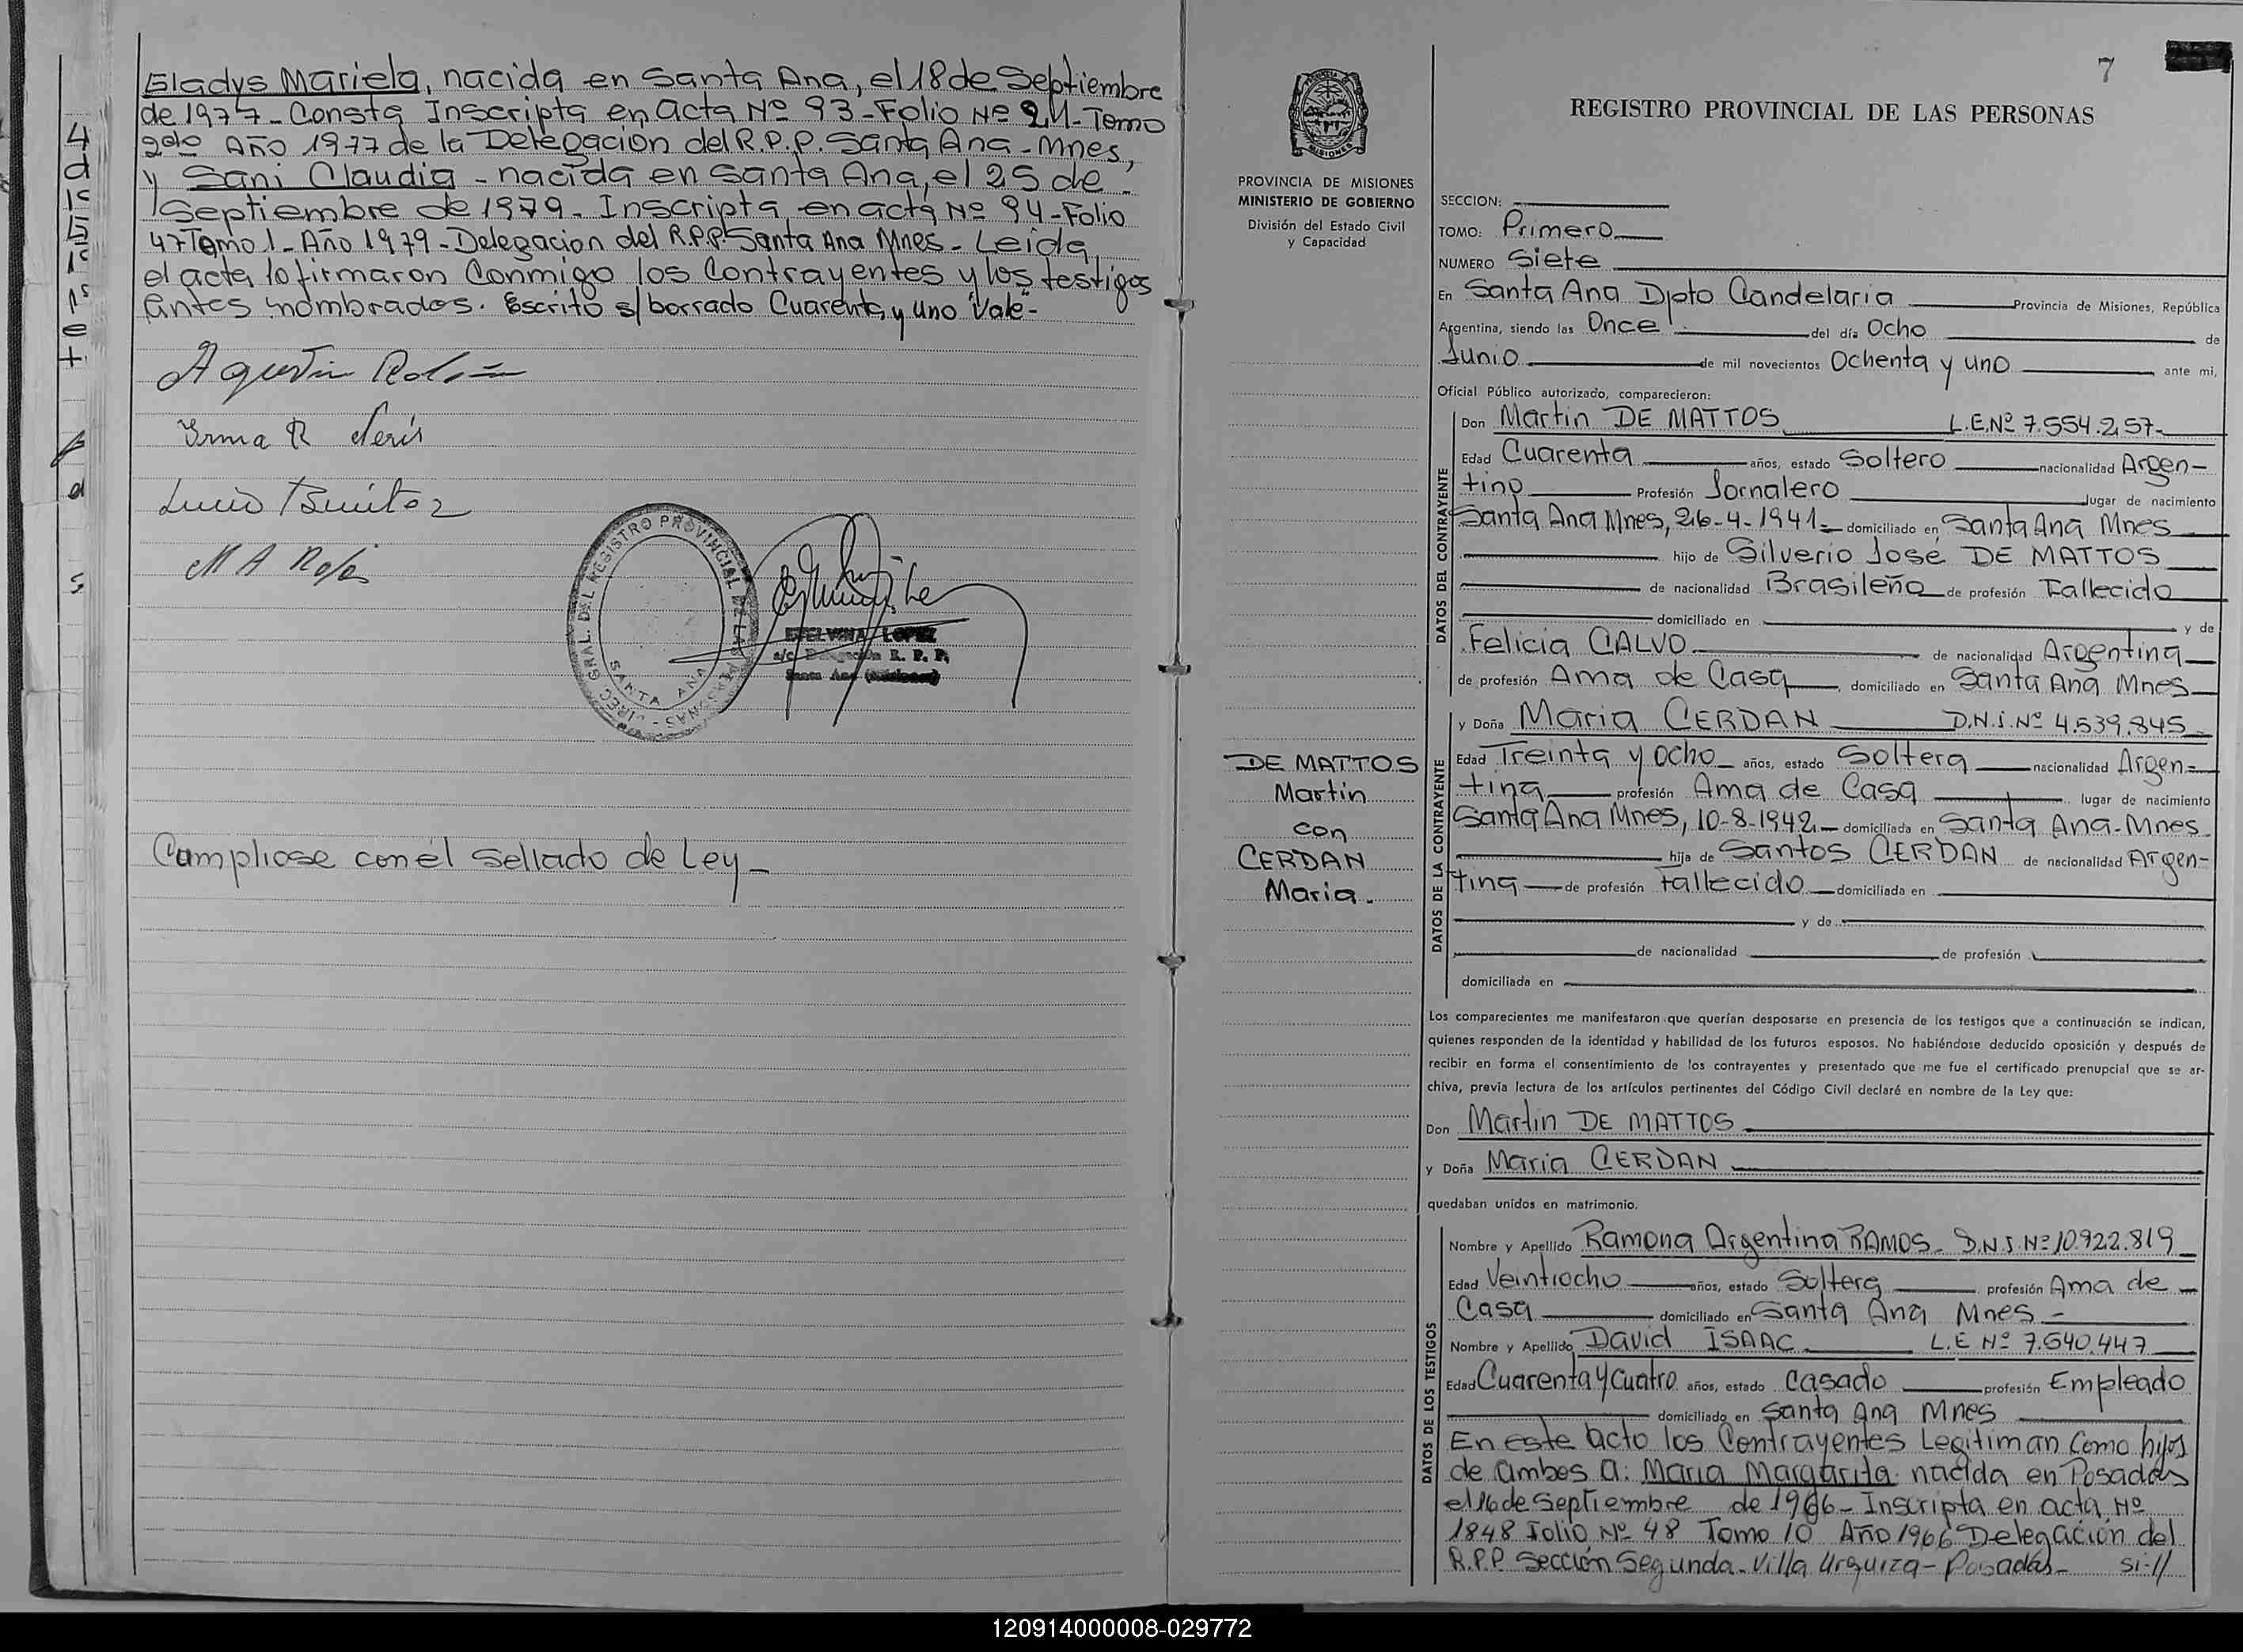 Gladys Mariela, nacida en Santa Ana, el 18 de Septiembre
de 1977 - Consta Inscripta en acta Nº 93 - Folio Nº 241 - Tomo
2do Año 1977 de la Delegación del R.P.P. Santa Ana - Mnes,
y Sani Claudia - nacida en Santa Ana, el 25 de
Septiembre de 1979 - Inscripta en acta Nº 94 - Folio
47 Tomo 1 - Año 1979 - Delegacion del R.P.P. Santa Ana Mnes - Leida
el acta lo firmaron Conmigo los Contrayentes y los testigos
antes nombrados. Escrito s/ borrado Cuarenta y uno "Vale" -
Agustin
Irma R
Lucio Benitez
M A
DIREC. GRAL. DEL REGISTRO PROVINCIAL DE LAS PERSONAS
SANTA ANA
ETELVINA LOPEZ
a/c Delegación R. P. P.
Santa Ana (Misiones)
Cumpliose con el Sellado de Ley -
7
REGISTRO PROVINCIAL DE LAS PERSONAS
MISIONES
PROVINCIA DE MISIONES
MINISTERIO DE GOBIERNO
División del Estado Civil
y Capacidad
DE MATTOS
Martin
con
CERDAN
Maria.
SECCION:
TOMO: Primero
NUMERO Siete
En Santa Ana Dpto Candelaria Provincia de Misiones, República
Argentina, siendo las Once del día Ocho de
Junio de mil novecientos Ochenta y uno ante mi,
Oficial Público autorizado, comparecieron:
DATOS DEL CONTRAYENTE
Don Martin DE MATTOS L.E.Nº 7.554.257-
Edad Cuarenta años, estado Soltero nacionalidad Argen-
tino Profesión Jornalero lugar de nacimiento
Santa Ana Mnes, 26-4-1941- domiciliado en Santa Ana Mnes
hijo de Silverio José DE MATTOS
de nacionalidad Brasileño de profesión Fallecido
domiciliado en y de
Felicia CALVO de nacionalidad Argentina
de profesión Ama de Casa, domiciliado en Santa Ana Mnes
DATOS DE LA CONTRAYENTE
y Doña Maria CERDAN D.N.i. Nº 4.539.845
Edad Treinta y ocho años, estado Soltera nacionalidad Argen-
tina profesión Ama de Casa lugar de nacimiento
Santa Ana Mnes, 10-8-1942 - domiciliada en Santa Ana - Mnes
hija de Santos CERDAN de nacionalidad Argen-
tina de profesión Fallecido domiciliada en
y de
de nacionalidad de profesión
domiciliada en
Los comparecientes me manifestaron que querían desposarse en presencia de los testigos que a continuación se indican,
quienes responden de la identidad y habilidad de los futuros esposos. No habiéndose deducido oposición y después de
recibir en forma el consentimiento de los contrayentes y presentado que me fue el certificado prenupcial que se ar-
chiva, previa lectura de los artículos pertinentes del Código Civil declaré en nombre de la Ley que:
Don Martin DE MATTOS
y Doña Maria CERDAN
quedaban unidos en matrimonio.
DATOS DE LOS TESTIGOS
Nombre y Apellido Ramona Argentina RAMOS - D.N.I. Nº 10.922.819
Edad Veintiocho años, estado Soltera profesión Ama de
Casa domiciliado en Santa Ana Mnes -
Nombre y Apellido David ISAAC L.E Nº 7.540.447
Edad Cuarenta y Cuatro años, estado Casado profesión Empleado
domiciliado en Santa Ana Mnes
En este acto los Contrayentes Legitiman Como hijos
de ambos a: Maria Margarita nacida en Posadas
el 16 de Septiembre de 1966 - Inscripta en acta Nº
1848 Folio Nº 48 Tomo 10 Año 1966 Delegación del
R.P.P. Sección Segunda - Villa Urquiza - Posadas - si-//
120914000008-029772